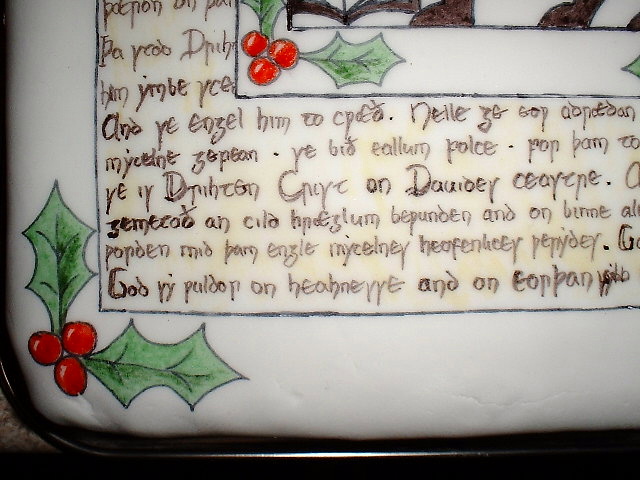 ƿæron on
þa stod Driht
him ymbe sce
And se engel him to cƿæð. Nelle ge eoƿ adrædan
mycelne gefean. se bið eallum folce. for þam to
se is Drihten Crist on Dauides ceastre.
gemetað an cild hræglum beƿunden and on binne al
ƿorden mid þam engle mycelnes heofenlices ƿerydes. Go
God sy ƿuldor on heahnesse and on eorþan